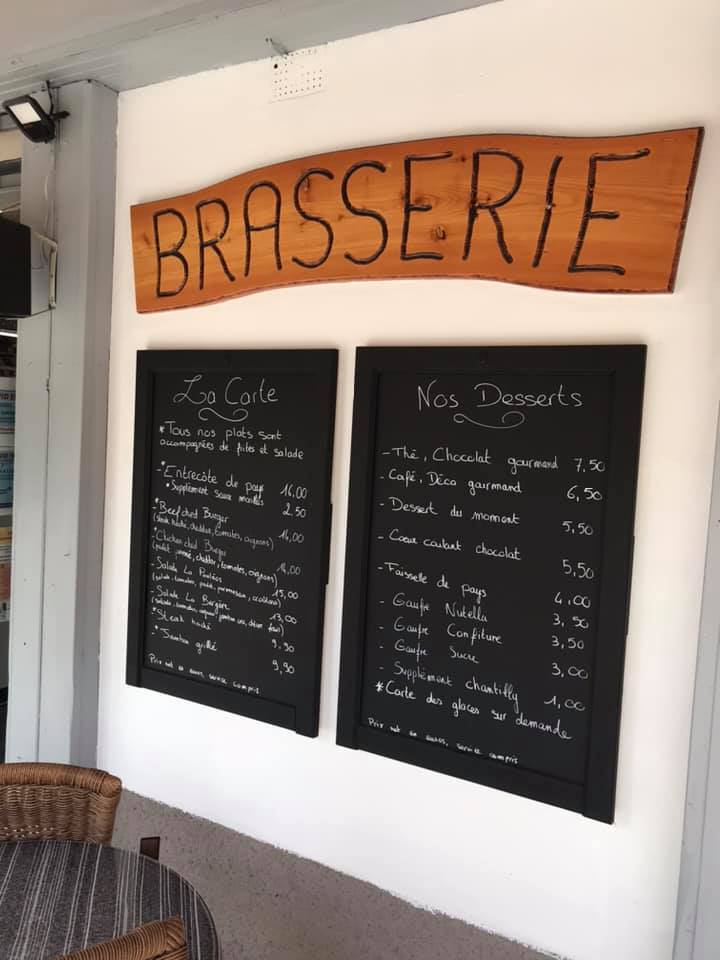 BRASSERIE
La Carte
*Tous nos plats sont
accompagnées de frites et salade
-*Entrecôte de pays 16,00
*Supplément sauce morilles 2.50
*Beef ched Burger 14,00
(steak haché, cheddar, tomates, oignons)
*Chicken ched Burger 14,00
(poulet pané, cheddar, tomates, oignons)
- Salade La 13,00
(salade, tomates, poulet, parmesan, croûtons)
- Salade La Bergère 13,00
(salade, tomates, jambon cru,
*Steak haché 9,90
-*Jambon grillé 9,90
Prix net en euros, service compris
Nos Desserts
- Thé, Chocolat gourmand 7,50
- Café, Déca gourmand 6,50
- Dessert du moment 5,50
- Coeur coulant chocolat 5,50
- Faisselle de pays 4,00
- Gaufre Nutella 3,50
- Gaufre Confiture 3,50
- Gaufre Sucre 3,00
- Supplément chantilly 1,00
*Carte des glaces sur demande
Prix net en euros, service compris